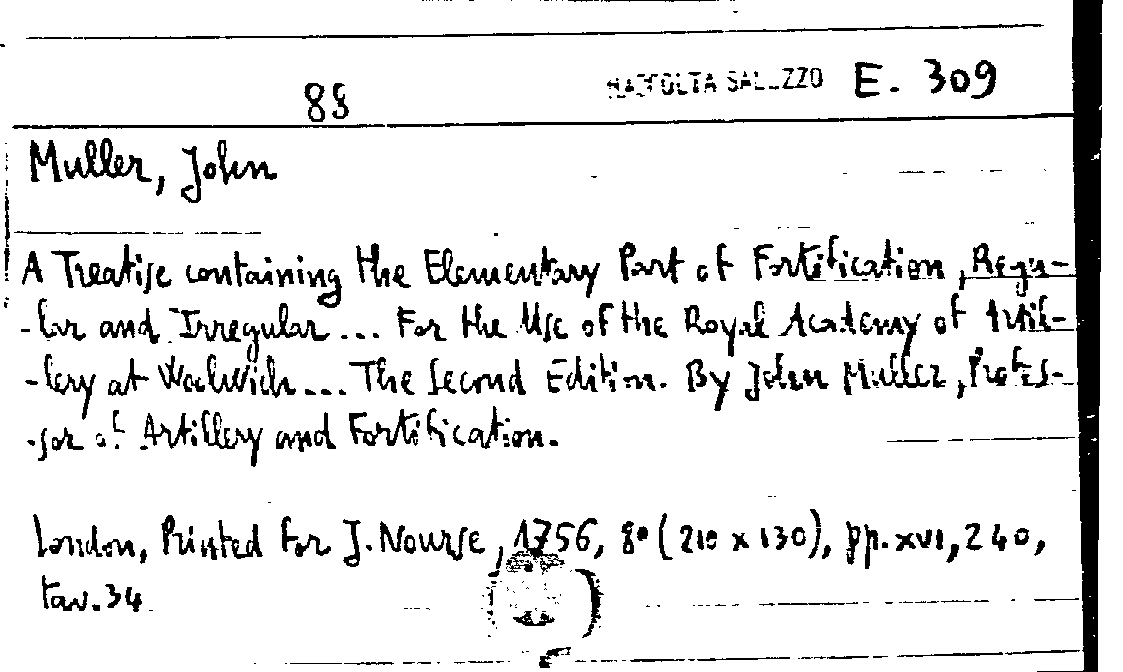 88 RACCOLTA SALUZZO E. 309
Muller, John
A Treatise containing the Elementary Part of Fortification, Regu-
-lar and Irregular... For the Use of the Royal Academy of Artil-
-lery at Woolwich... The Second Edition. By John Muller, Profes-
-sor of Artillery and Fortification.
London, Printed for J. Nourse, 1756, 8° (210 x 130), pp. xvi, 240,
tav. 34